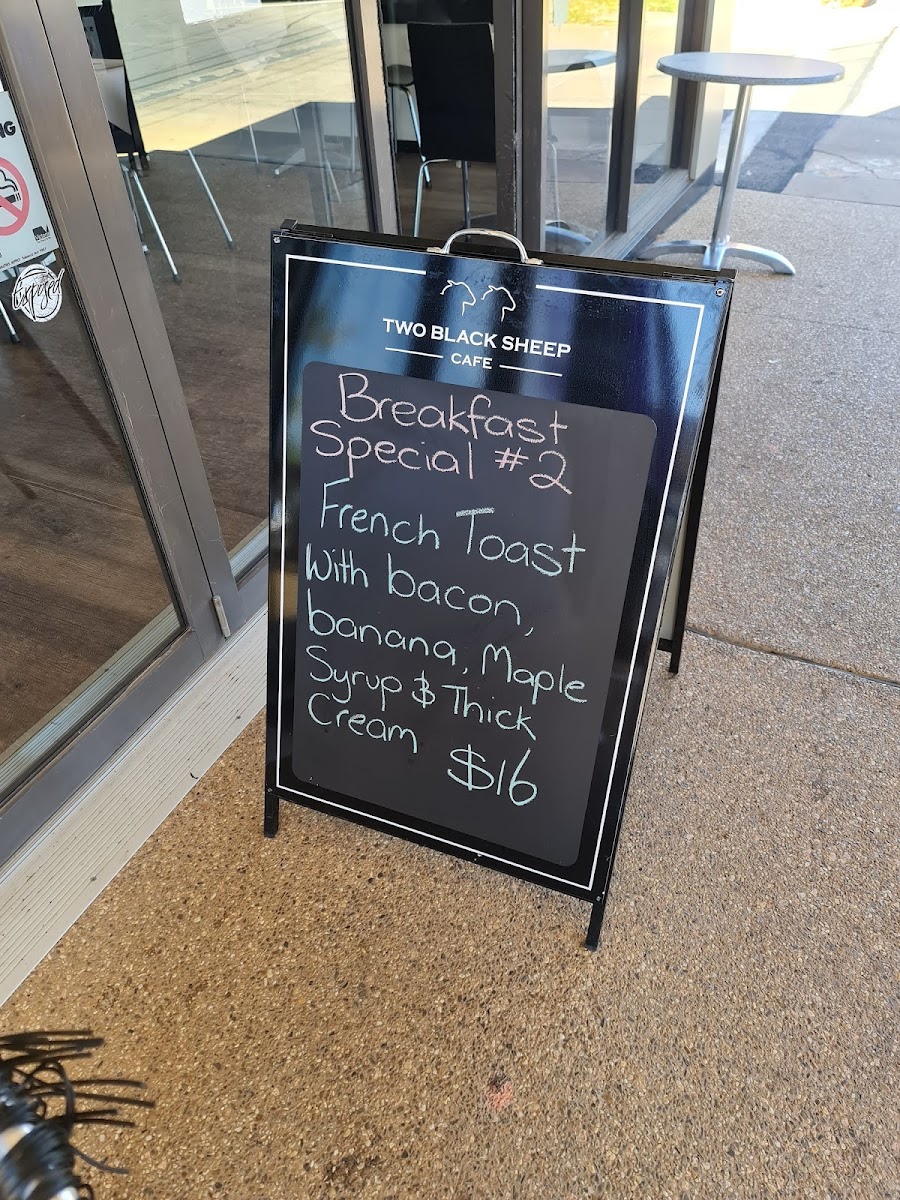 NG
Exposed
TWO BLACK SHEEP
CAFE
Breakfast
Special #2
French Toast
With bacon,
banana, Maple
Syrup & Thick
Cream
$16